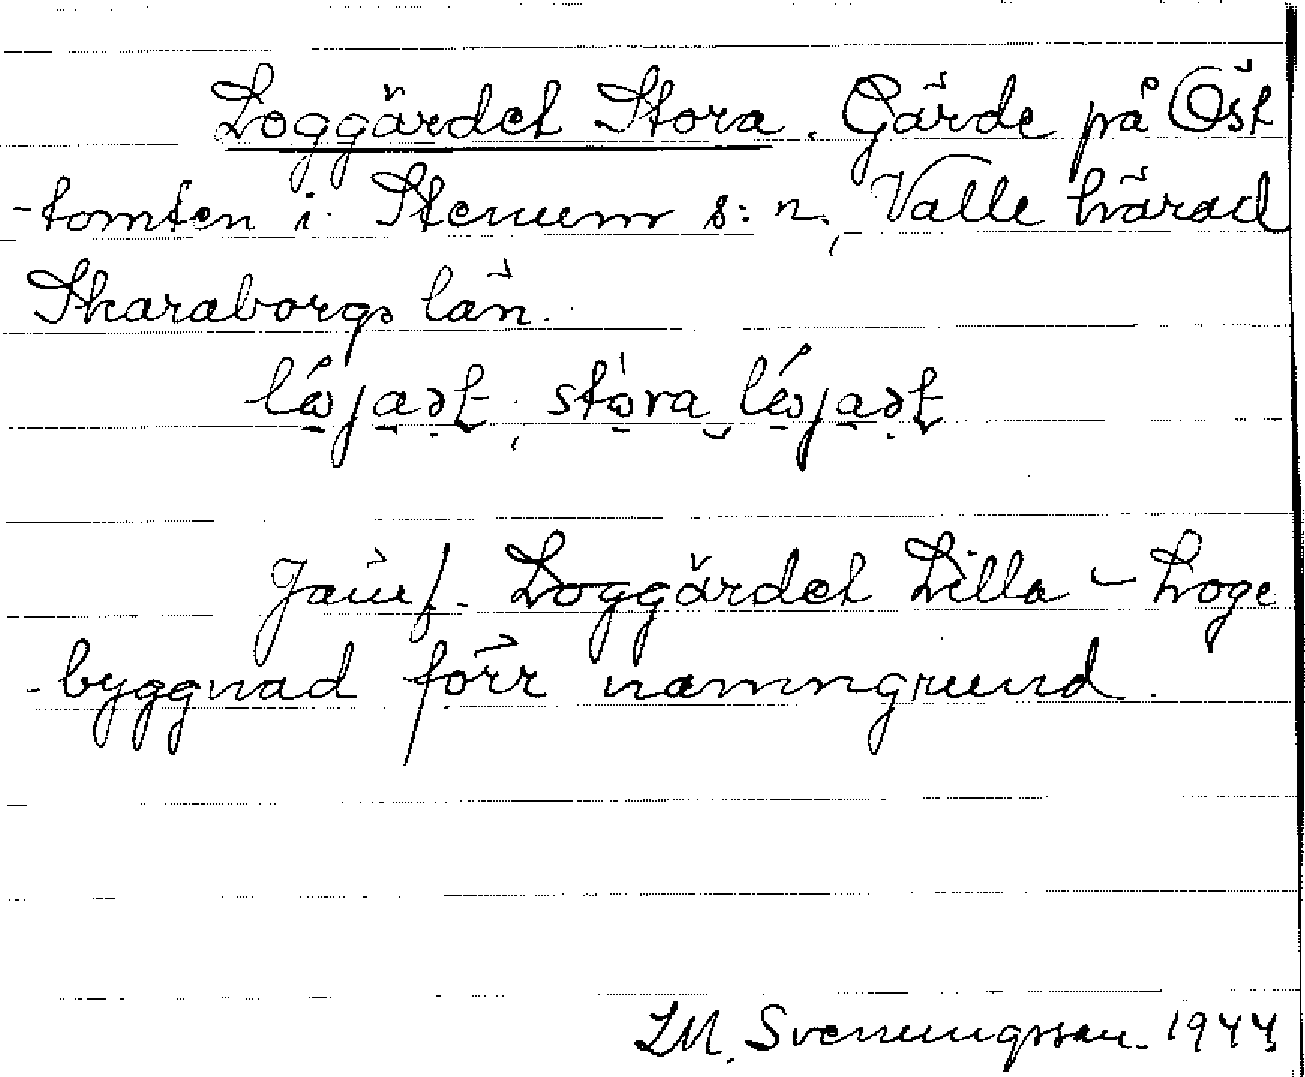 Loggärdet Stora. Gärde på Öst
-tomten i Stenum s:n, Valle härad
Skaraborgs län.
Jämf. Loggärdet Lilla - Loge
-byggnad förr namngrund.
LM. Svenungsson. 1944